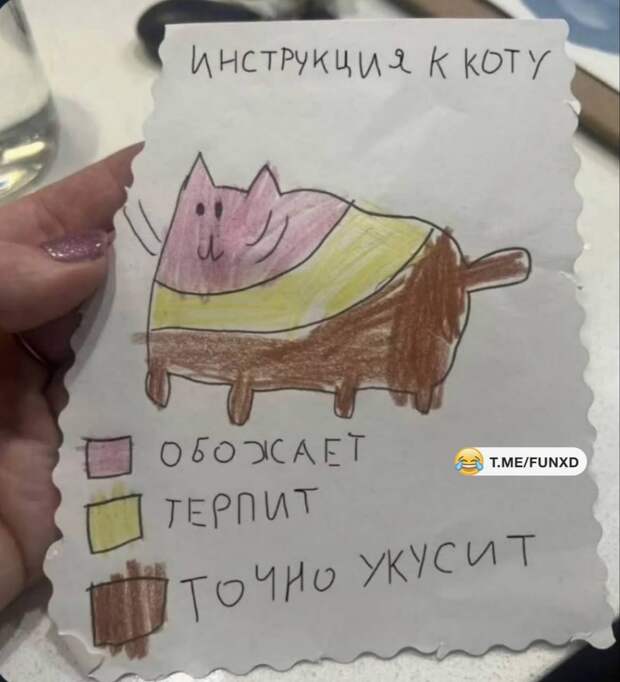 ИНСТРУКЦИЯ К КОТУ
ОБОЖАЕТ
T.ME/FUNXD
ТЕРПИТ
ТОЧНО УКУСИТ